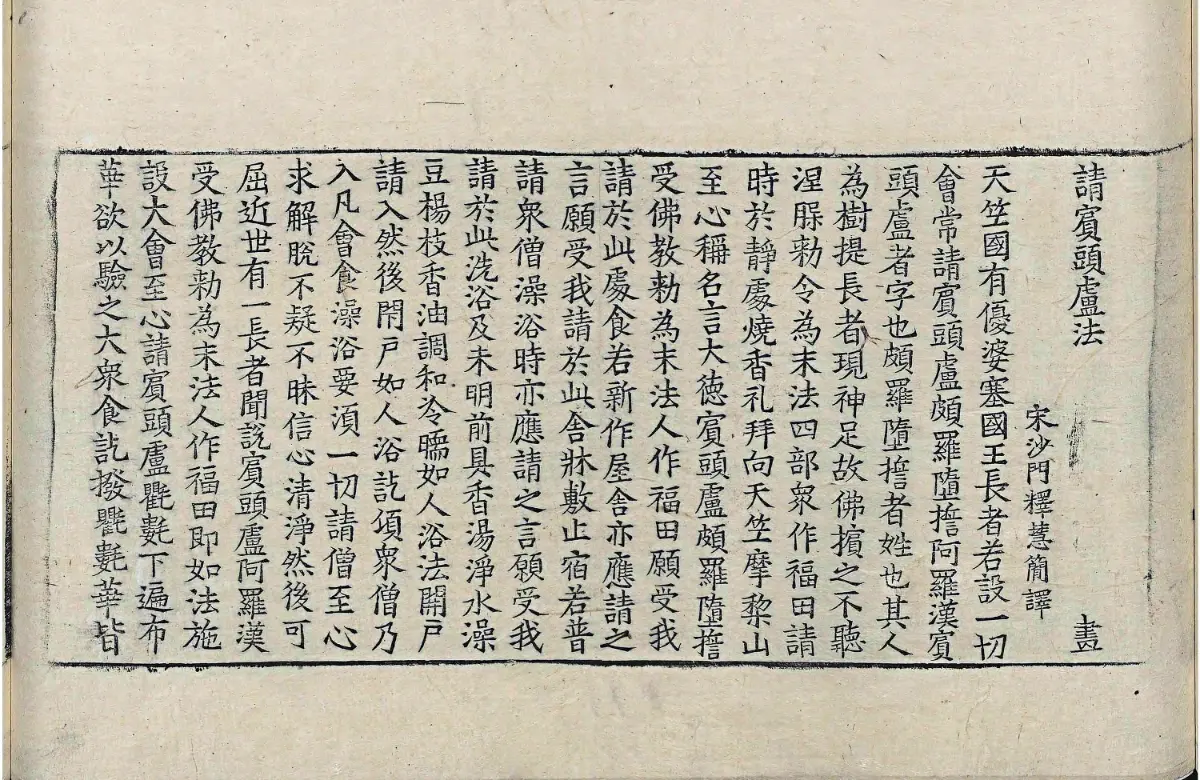 請賓頭盧法　畫
宋沙門釋慧簡譯
天竺國有優婆塞國王長者若設一切
會常請賓頭盧頗羅墮誓阿羅漢賓
頭盧者字也頗羅墮誓者姓也其人
為樹提長者現神足故佛擯之不聽
涅槃勑令為末法四部衆作福田請
時於静處燒香礼拜向天竺摩黎山
至心稱名言大德賓頭盧頗羅墮誓
受佛教勑為末法人作福田願受我
請於此處食若新作屋舍亦應請之
言願受我請於此舍牀敷止宿若普
請衆僧澡浴時亦應請之言願受我
請於此洗浴及未明前具香湯淨水澡
豆楊枝香油調和冷暖如人浴法開戶
請入然後閇戶如人浴訖頃衆僧乃
入凡會食澡浴要湏一切請僧至心
求解脫不疑不昧信心清淨然後可
屈近世有一長者聞說賓頭盧阿羅漢
受佛教勑為末法人作福田即如法施
設大會至心請賓頭盧氍㲣下遍布
華欲以驗之大衆食訖撥氍㲣華皆